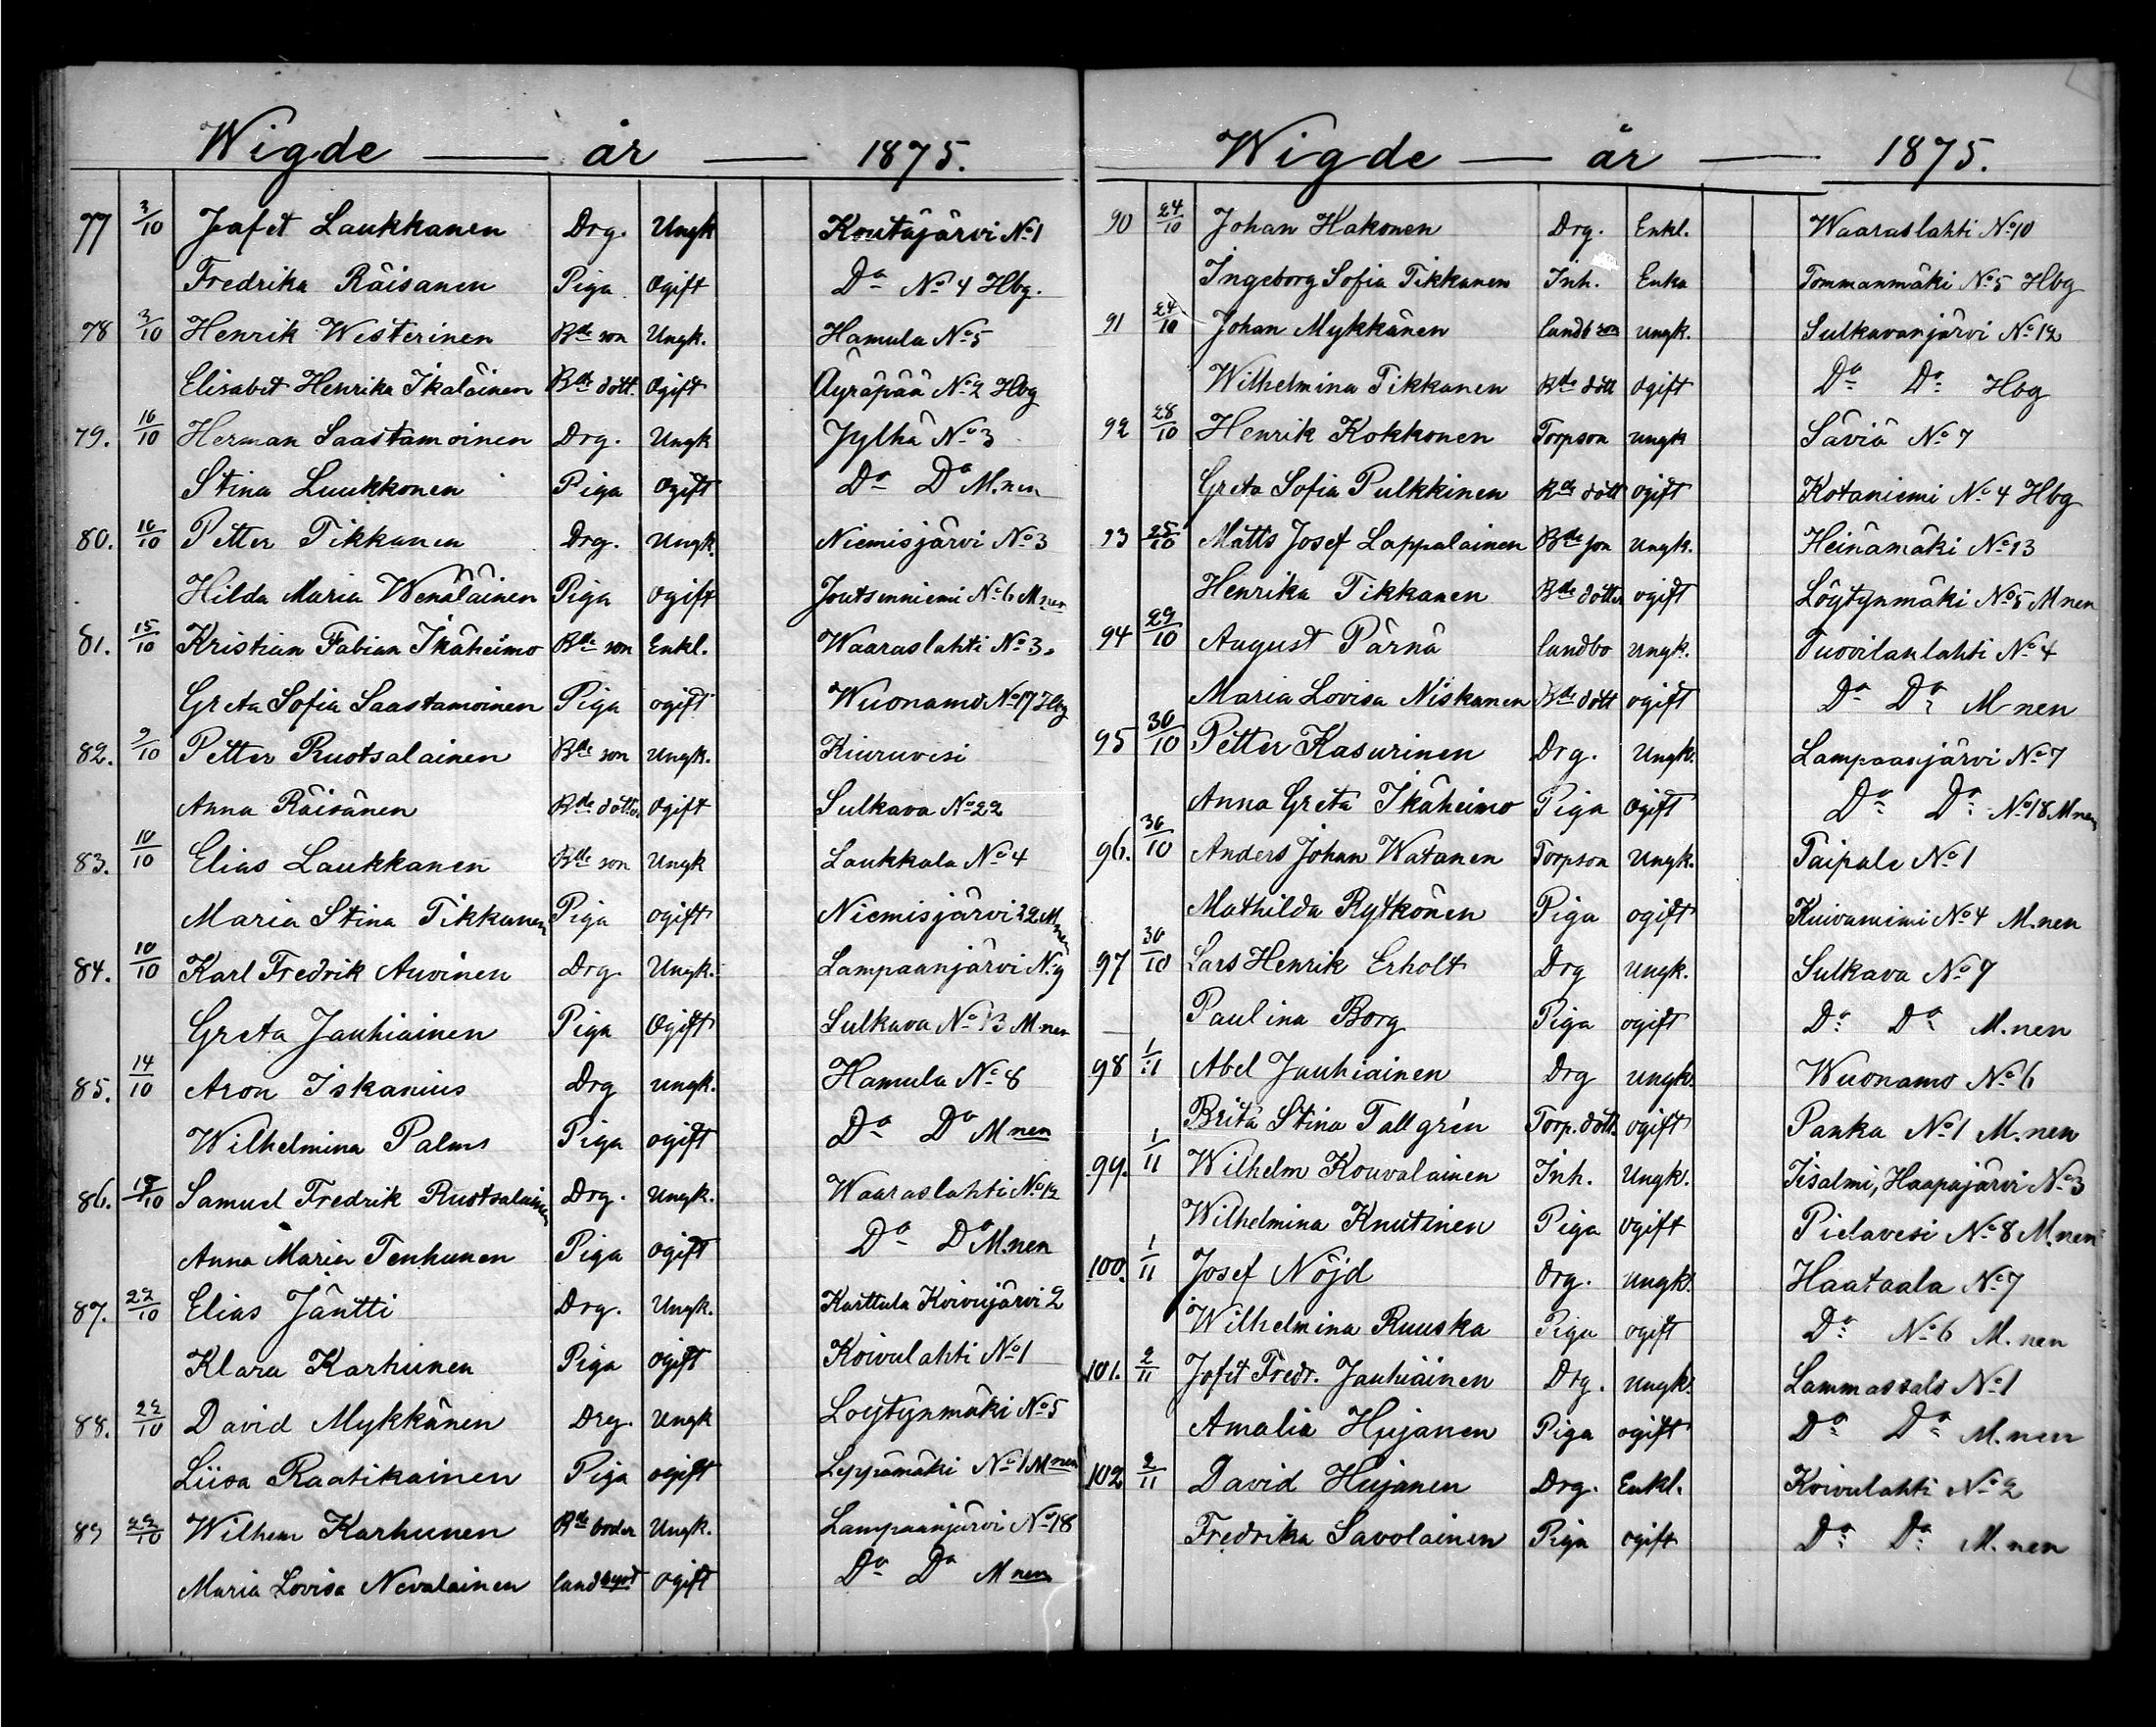 Wigde — år — 1875.
77 3/10 Jafet Laukkanen Drg. Ungk Koutajärvi No 1
Fredrika Räisanen Piga Ogift Do No 4 Hbg.
78 3/10 Henrik Westerinen Bde son Ungk. Hamula No 5
Elisabet Henrika Ikaläinen Bde dott. Ogift Äyräpää No 2 Hbg
79. 10/10 Herman Saastamoinen Drg. Ungk Jylhä No 3
Stina Luukkonen Piga Ogift Do Do M.nen
80. 10/10 Petter Tikkanen Drg. Ungk. Niemisjärvi No 3
Hilda Maria Wenäläinen Piga Ogift Joutsenniemi No 6 M nen
81. 15/10 Kristian Fabian Ikäheimo Bde son Enkl. Waaraslahti No 3.
Greta Sofia Saastamoinen Piga ogift Wuonamo No 17 Hbg
82. 9/10 Petter Ruotsalainen Bde son Ungk. Kiuruvesi
Anna Räisänen Bde dotter Ogift Sulkava No 22
83. 10/10 Elias Laukkanen Bde son Ungk Laukkala No 4
Maria Stina Tikkanen Piga ogift Niemisjärvi 32 M nen
84. 10/10 Karl Fredrik Auvinen Drg. Ungk. Lampaanjärvi No 9
Greta Jauhiainen Piga Ogift Sulkava No 13 M.nen
85. 14/10 Aron Iskanius Drg ungk. Hamula No 8
Wilhelmina Palms Piga ogift Do Do M nen
86. 18/10 Samuel Fredrik Ruotsalainen Drg. Ungk. Waaraslahti No 12
Anna Maria Tenhunen Piga ogift Do Do M.nen
87. 22/10 Elias Jäntti Drg. Ungk. Karttula Koivujärvi 2
Klara Karhunen Piga ogift Koivulahti No 1
88. 22/10 David Mykkänen Drg. Ungk Loytynmäki No 5
Liisa Raatikainen Piga ogift Leppämäki No 1 M nen
89 22/10 Wilhem Karhunen Bde broder Ungk. Lampaanjärvi No 18
Maria Lovisa Nevalainen ogift Do Do M nen
Wigde — år — 1875.
90 24/10 Johan Hakonen Drg. Enkl. Waaraslahti No 10
Ingeborg Sofia Tikkanen Inh. Enka Tommanmäki No 5 Hbg
91 24/10 Johan Mykkänen landb son ungk. Sulkavanjärvi No 12
Wilhelmina Tikkanen Bde dott ogift Do Do Hbg
92 28/10 Henrik Kokkonen Torpson ungk Säviä No 7
Greta Sofia Pulkkinen Bde dott ogift Kotaniemi No 4 Hbg
93 25/10 Matts Josef Lappalainen Bde son ungk. Heinämäki No 13
Henrika Tikkanen Bde dotter ogift Löytynmäki No 5 M nen
94 29/10 August Pärnä landbo ungk. Tuovilanlahti No 4
Maria Lovisa Niskanen Bde dott ogift Do Do M nen
95 30/10 Petter Kasurinen Drg. Ungk. Lampaanjärvi No 7
Anna Greta Ikäheimo Piga ogift Do Do No 18 M nen
96. 30/10 Anders Johan Watanen Torpson Ungk. Taipale No 1
Mathilda Rytkönen Piga ogift Kuivaniemi No 4 M.nen
97 30/10 Lars Henrik Erholt Drg ungk. Sulkava No 7
Paulina Borg Piga ogift Do Do M.nen
98 1/11 Abel Jauhiainen Drg ungk. Wuonamo No 6
Brita Stina Tallgrén Torp. dott. ogift Panka No 1 M.nen
99. 1/11 Wilhelm Kouvalainen Inh. Ungk. Iisalmi, Haapajärvi No 3
Wilhelmina Knutinen Piga ogift Pielavesi No 8 M.nen
100. 1/11 Josef Nöjd Drg. ungk. Haataala No 7
Wilhelmina Ruuska Piga ogift Do No 6 M.nen
101. 2/11 Jafet Fredr. Jauhiäinen Drg. ungk. Lammassalo No 1
Amalia Hujanen Piga ogift Do Do M.nen
102 2/11 David Hujanen Drg. Enkl. Koivulahti No 2
Fredrika Savolainen Piga ogift Do Do M.nen